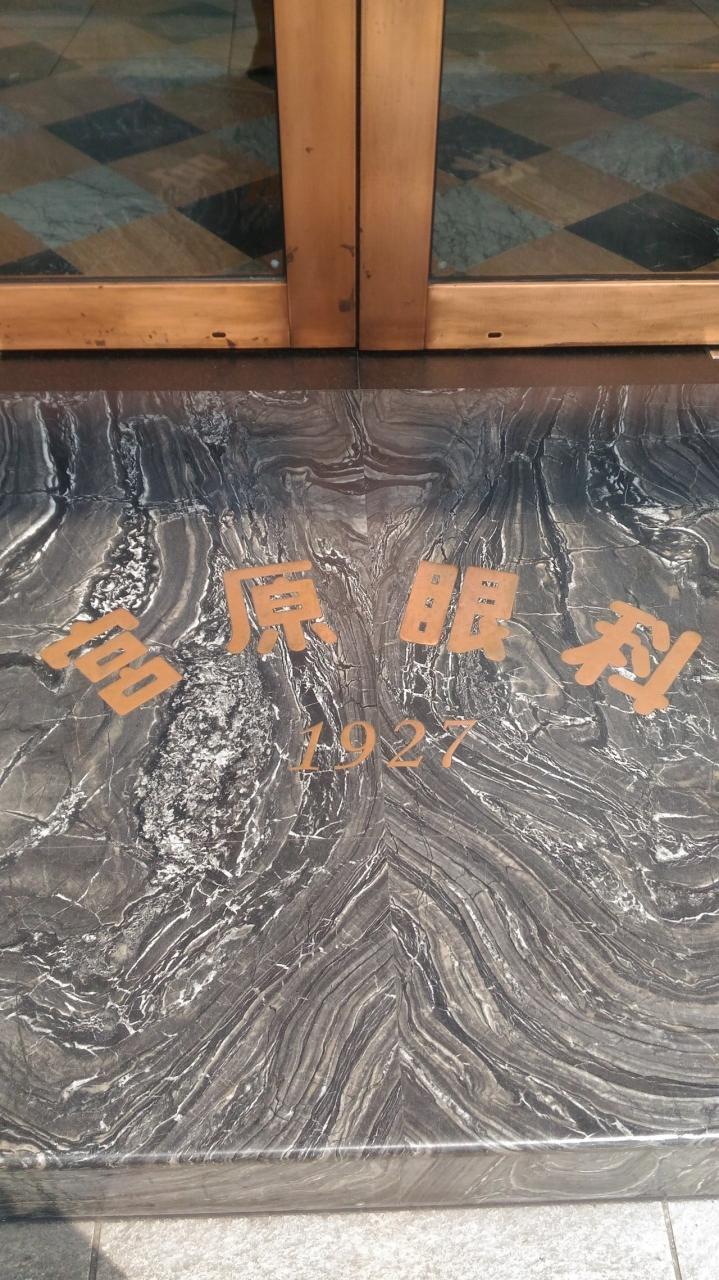 宮原眼科
1927